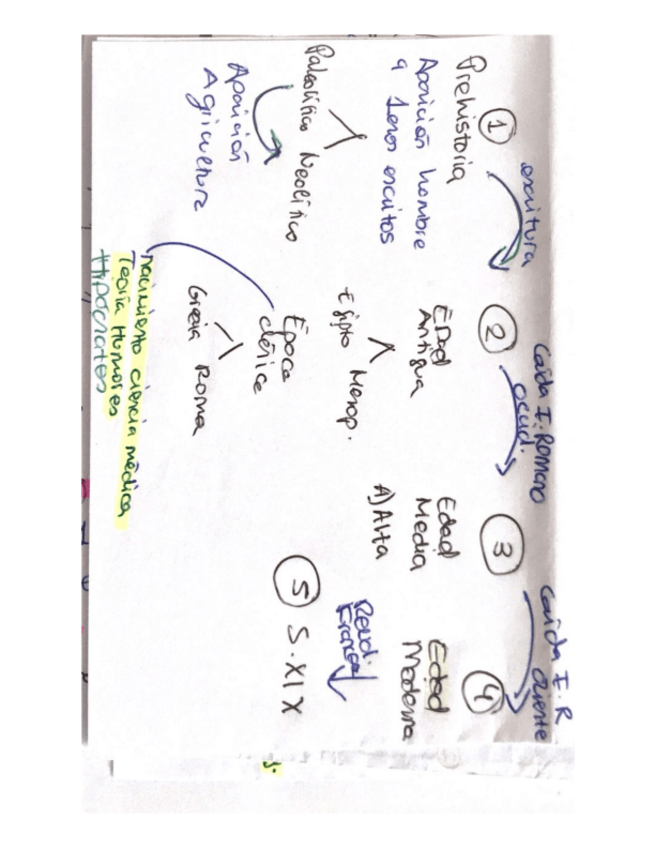 escritura
1
Prehistoria
Aparición hombre
a 1eros escritos
Paleolítico Neolítico
Aparición
Agricultura
Caída I. Romano
occid.
2
Edad
Antigua
Egipto Mesop.
Época
clásica
Grecia Roma
nacimiento ciencia médica
Teoría Humores
Hipócrates
Caída I. R
Oriente
3
Edad
Media
A) Alta
4
Edad
Moderna
Revol.
Francesa
5 S. XIX